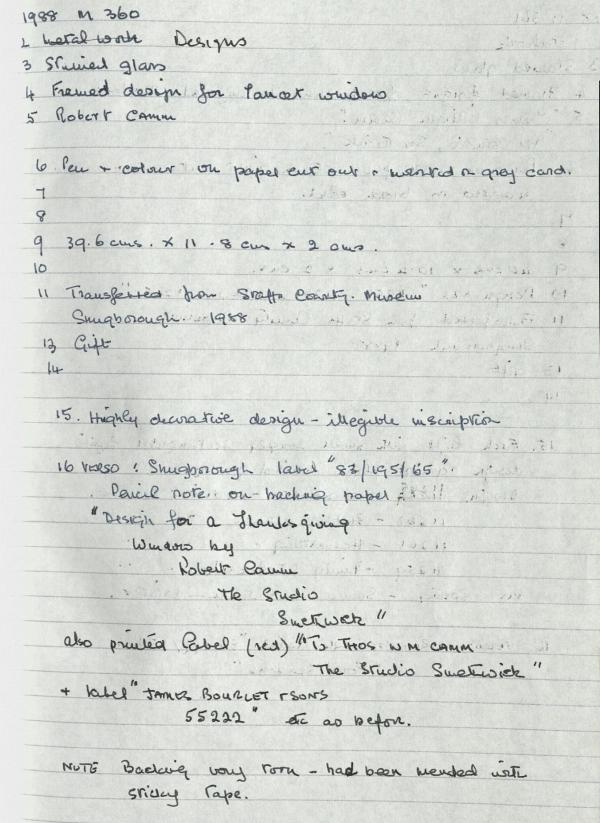 1988 M 360
2 Metalwork Designs
3 Stained glass
4 Framed design for lancet window
5 Robert Camm
6 Pen + colour on paper cut out + mounted on grey card.
7
8
9 39.6 cms. x 11.8 cms x 2 cms.
10
11 Transferred from Staffs County. Museum
Shugborough. 1988
13 Gift
14
15. Highly decorative design - illegible inscription
16 verso : Shugborough label "83/195/65".
Pencil note on backing paper :
"Design for a Thanksgiving
Window by
Robert Camm
The Studio
Smethwick"
also printed label (red) "To THOS W M CAMM
The Studio Smethwick"
+ label "JAMES BOURLET & SONS
55222" etc as before.
NOTE Backing very torn - had been mended with
sticky tape.